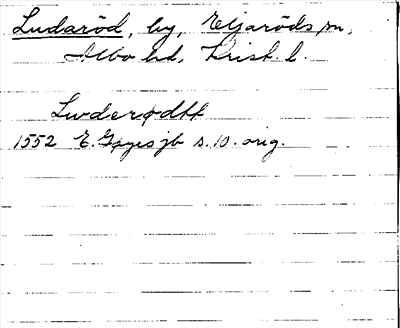 Ludaröd, by, Eljaröds sn,
Albo hd, Krist. l.
Lwderødtt
1552 E. Gøyes jb s. 10. orig.